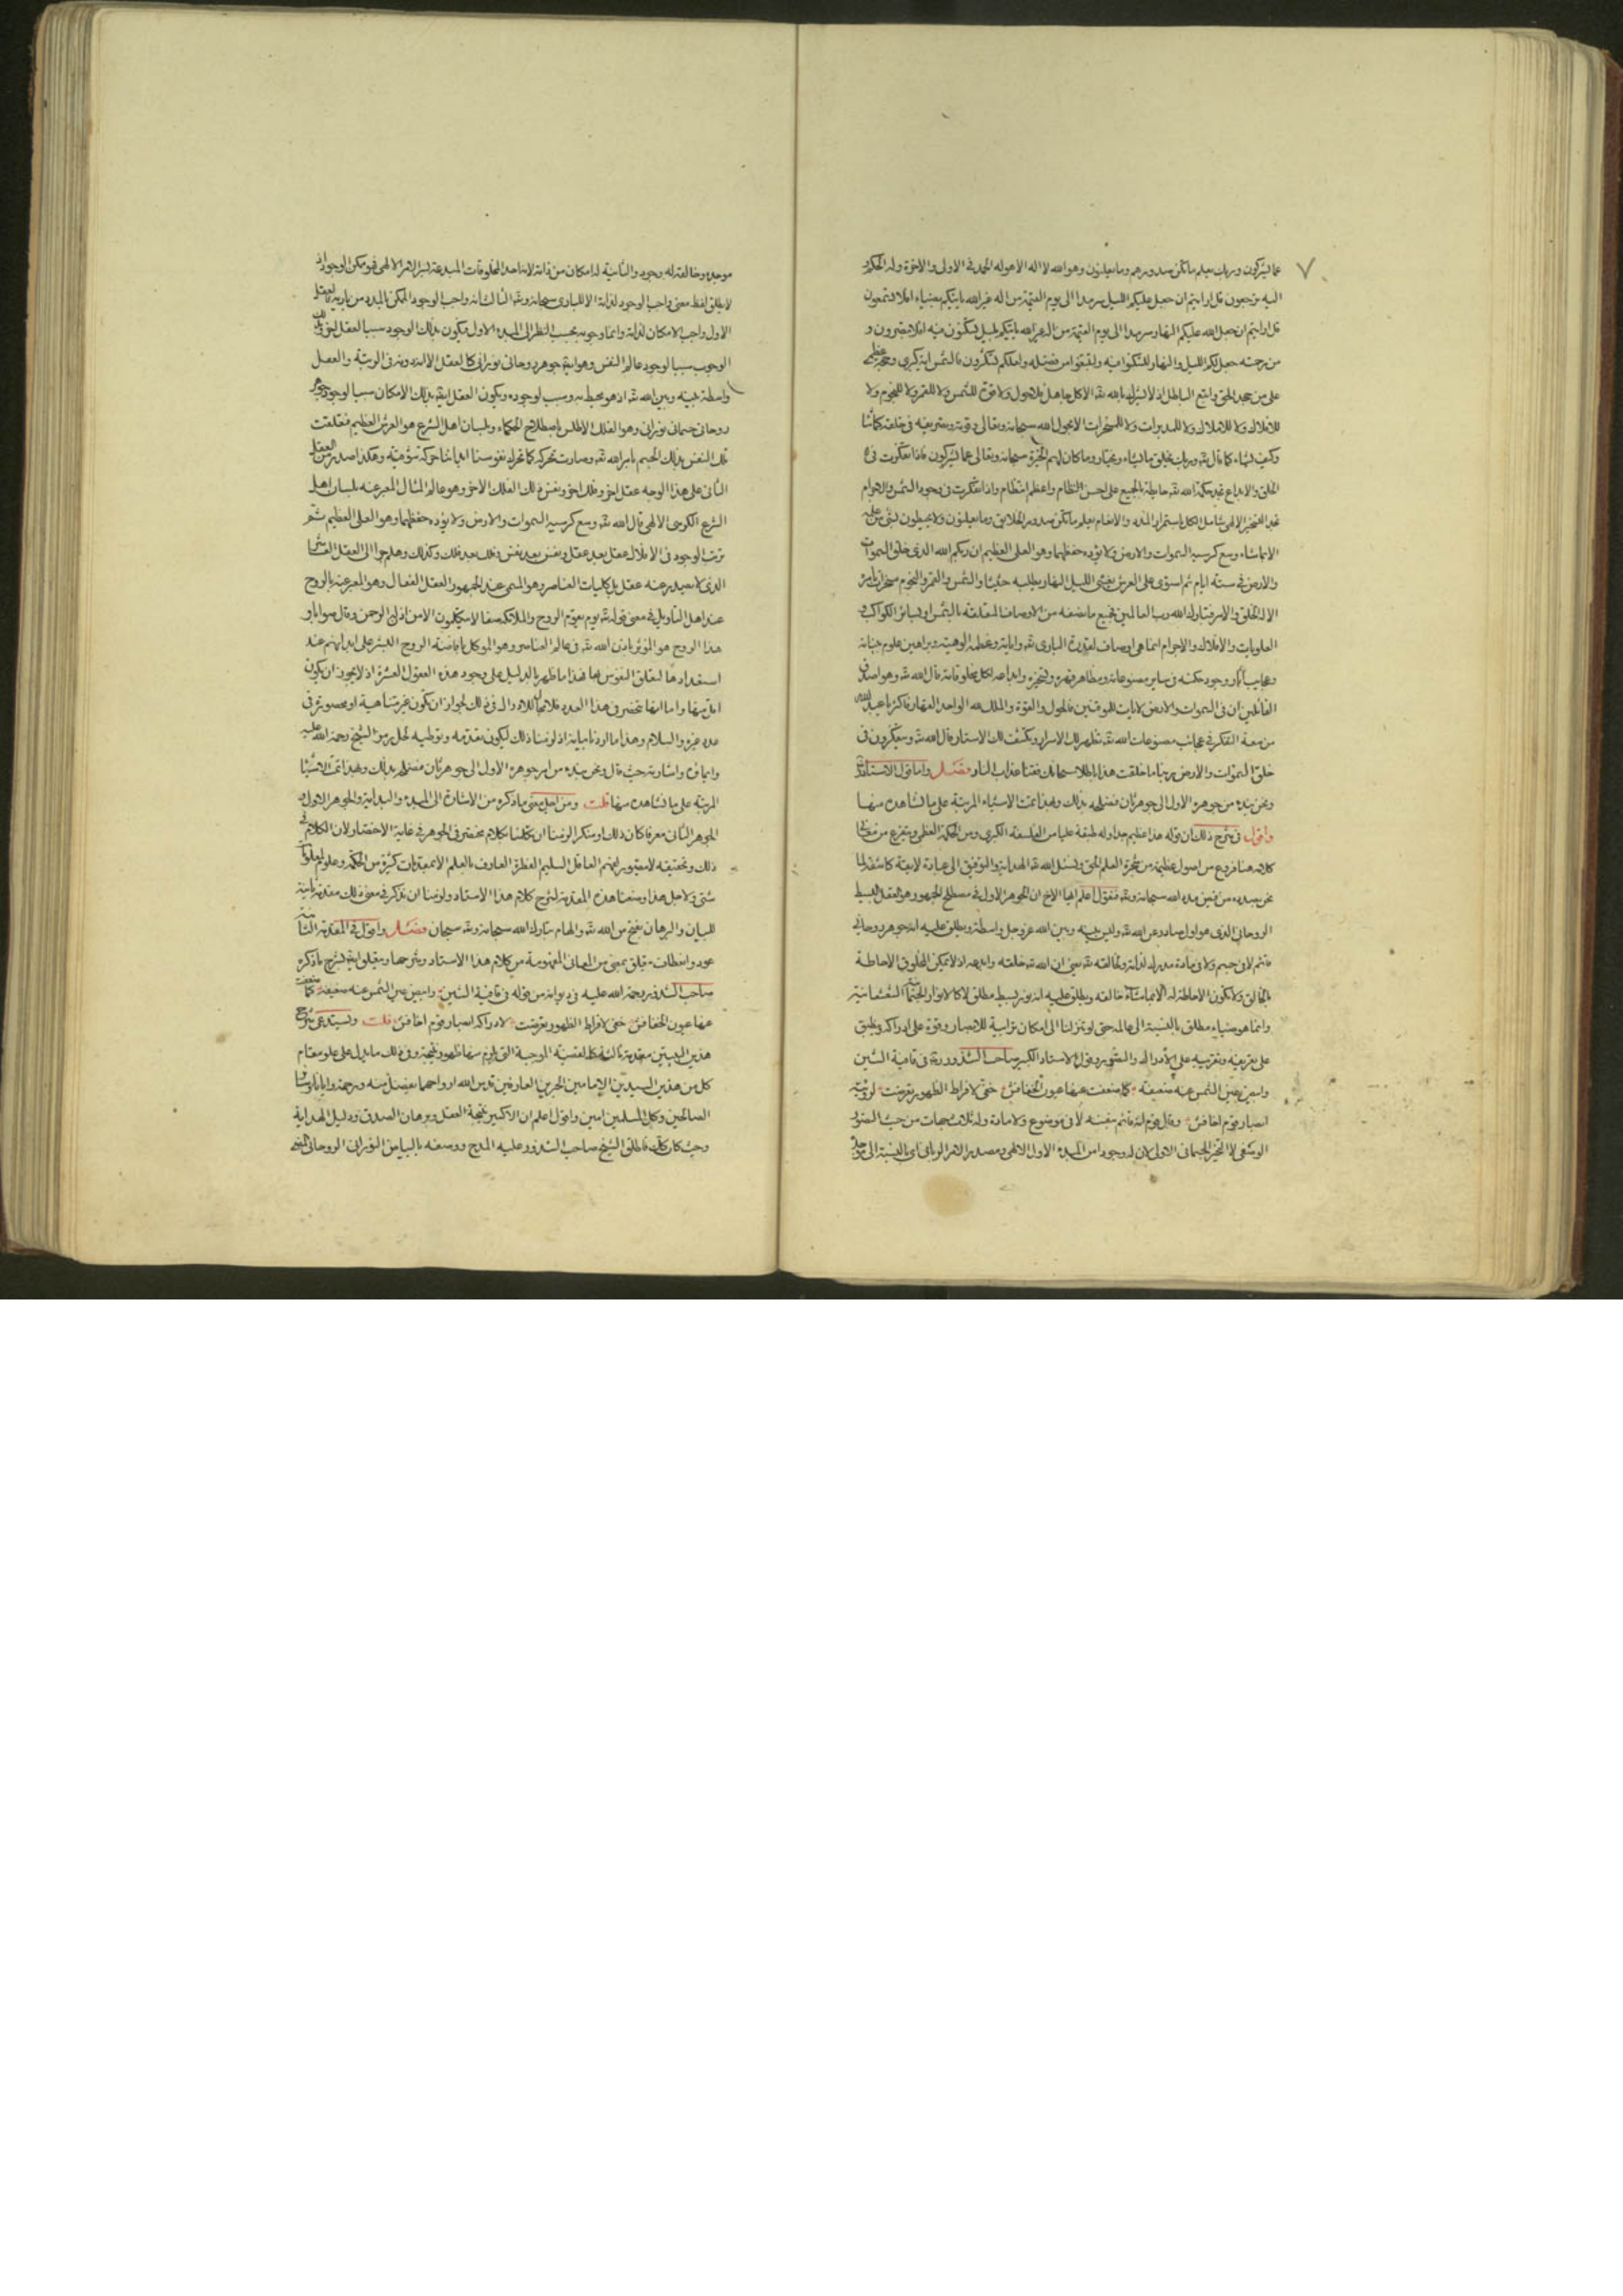 ٧
عما يشركون وربك يعلم ما تكن صدورهم وما يعلنون وهو الله لا اله الا هو له الحمد في الاولى والاخرة وله الحكم و
اليه ترجعون قل ارايتم ان جعل الله عليكم الليل سرمدا الى يوم القيمة من اله غير الله ياتيكم بضياء افلا تسمعون
قل ارايتم ان جعل الله عليكم النهار سرمدا الى يوم القيمة من اله غير الله ياتيكم بليل تسكنون فيه افلا تبصرون و
من رحمته جعل لكم الليل والنهار لتسكنوا فيه ولتبتغوا من فضله ولعلكم تشكرون فالشمس اية كبرى وحجة عظمى
على من جحد الحق واتبع الباطل اذ لا يشرك بالله تعه الا كل جاهل فلا حول ولا قوة للشمس ولا للقمر ولا للنجوم ولا
للافلاك ولا للاملاك ولا للمدبرات ولا للمسخرات الا بحول الله سبحانه وتعالى وقوته وتصريفه في خلقه كما شا
وكيف يشاء كما قال تعه وربك يخلق ما يشاء ويختار وما كان لهم الخيرة سبحانه وتعالى عما يشركون فاذا تفكرت في
الخلق والابداع تجد حكمة الله تعه حايطة بالجميع على احسن النظام واعظم انتظام واذا تفكرت في وجود الشمس والاجرام
تجد الفيض الالهي شامل الكل باستمرار المدد والانعام يعلم ما تكن صدور الخلايق وما يعلنون ولا يحيطون بشي من علمه
الا بما شاء وسع كرسيه السموات والارض ولا يؤده حفظهما وهو العلي العظيم ان ربكم الله الذي خلق السموات
والارض في ستة ايام ثم استوى على العرش يغشي الليل النهار يطلبه حثيثا والشمس والقمر والنجوم مسخرات بامره
الا له الخلق والامر تبارك الله رب العالمين فجميع ما نصفه من الاوصاف المتعلقة بالشمس او بسائر الكواكب و
العلويات والافلاك والاجرام انما هي اوصاف لقدرة الباري تعه واياته وعظمة الوهيته وبراهين علوم جنابه
وعجايب اثار وجود حكمته في ساير مصنوعاته ومظاهر قهره وتسخيره وابداعه لكل مخلوقاته قال الله تعه وهو اصدق
القائلين ان في السموات والارض لايات للموقنين فالحول والقوة والملك لله الواحد القهار فاكثر يا عبد الله
من معه التفكر في عجائب مصنوعات الله تعه تظهر لك الاسرار وتكشف لك الاستار قال الله تعه ويتفكرون في
خلق السموات والارض ربنا ما خلقت هذا باطلا سبحانك فقنا عذاب النار فصل واما قول الاستاذ
ونحن نبدء من جوهره الاول الى جوهر ثان فنصرفه بذلك ولهذا تمت الاشياء المرتبة على ما نشاهده منها
واقول في شرح ذلك ان قوله هذا عظيم جدا وله طبقة عليا من الفلسفة الكبرى ومن الحكمة العظمى ويتفرع من معنى
كلامه هنا فروع من اصول عظيمة من شجرة العلم الحق ونسئل الله تعه الهداية والتوفيق الى عبارة لايقة كاشفة لما
نحن بصدده من فيض مدد الله سبحانه وتعه فنقول اعلم ايها الاخ ان الجوهر الاول في مصطلح الجمهور هو العقل البسيط
الروحاني الذي هو اول صادر عن الله تعه وليس بينه وبين الله عز وجل واسطة ويطلق عليه انه جوهر روحاني
قائم لا في جسم ولا في مادة مدرك لذاته ولخالقه تعه بمعنى ان الله تعه خلقه وابدعه اذ لا يمكن المخلوق الاحاطة
بالخالق ولا يكون الاحاطة له الا بما شاء خالقه ويطلق عليه انه نور بسيط مطلق لا كالانوار الجسمانية النفسانية
وانما هو ضياء مطلق بالنسبة الى عالمه حتى لو تنزلنا الى امكان ترائيه للابصار وقوة على ادراكه ويطبق
على تعريفه وتقريبه على الادراك والتصوير وقول الاستاذ الكبير صاحب الشذور ره في قافية الشين
وابيض عين الشمس عنه ضعيفة كما ضعفت عنها عيون الخفافش خفى لافراط الظهور تعرضت لرؤيته
ابصار قوم اخافش وقال قوم انه قائم بنفسه لا في موضوع ولا مادة وله ثلث جهات من حيث التصور
الوضعي لا الحيز الجسماني الاولى ان له وجود من المبدء الاول الالهي ومصدره الامر الرباني اي بالنسبة الى موجده
موجده وخالقه له وجود والثانية له امكان من ذاته لانه احد المخلوقات المبدعة بسر الامر الالهي فهو ممكن الوجود اذ
لا يطلق لفظ معنى واجب الوجود لذاته الا للباري سبحانه وتعه الثالثة انه واجب الوجود الممكن بالمدد من باريه فالعقل
الاول واجب الامكان لذاته وانما وجوبه بحسب النظر الى المبدء الاول فيكون بذلك الوجود سببا لعقل اخر وبذلك
الوجوب سببا لوجود عالم النفس وهو ايضا جوهر روحاني نوراني كالعقل الا انه دونه في الرتبة والعقل
واسطة بينه وبين الله تعه اذ هو محيط به وسبب لوجوده ويكون العقل ايضا بذلك الامكان سببا لوجود جوهر
روحاني جسماني نوراني وهو الفلك الاطلس باصطلاح الحكماء وبلسان اهل الشرع هو العرش العظيم فتعلقت
تلك النفس بذلك الجسم بامر الله تعه وصارت تحركه كما تحرك نفوسنا ابداننا حركة شوقية وهكذا صدر من العقل
الثاني على هذا الوجه عقل اخر وفلك اخر ونفس ذلك الفلك الاخر وهو عالم المثال المعبر عنه بلسان اهل
الشرع الكرسي الالهي قال الله تعه وسع كرسيه السموات والارض ولا يؤده حفظهما وهو العلي العظيم ثم
ترتب الوجود في الافلاك عقل بعد عقل ونفس بعد نفس وفلك بعد فلك وكذلك وهلم جرا الى العقل العاشر
الذي لا يصدر عنه عقل بل كليات العناصر وهو المسمى عند الجمهور العقل الفعال وهو المعبر عنه بالروح
عند اهل التاويل في معنى قوله تعه يوم يقوم الروح والملائكة صفا لا يتكلمون الا من اذن له الرحمن وقال صوابا و
هذا الروح هو المؤثر باذن الله تعه في عالم العناصر وهو الموكل بافاضة الروح البشر على ابدانهم عند
استعدادها لتعلق النفوس بها فهذا ما ظهر بالدليل على وجود هذه العقول العشرة اذ لا يجوز ان يكون
اقل منها واما انها تنحصر في هذا العدد فلا مجال للادراك في ذلك لجواز ان تكون غير متناهية او محصورة في
عدد غيره والسلام وهذا ما اردنا بيانه اذ لزمنا ذلك ليكون مقدمة وتوطية لحل رمز الشيخ رحمة الله عليه
وايمائه واشارته حيث قال ونحن نبدء من امر جوهره الاول الى جوهر ثان فنصرفه بذلك ولهذا تمت الاشياء
المرتبة على ما نشاهده منها قلت ومن اجل معنى ما ذكره من الاشارة الى المبدء والبداية والجوهر الاول و
الجوهر الثاني معرفا كان ذلك او منكرا لزمنا ان تكلمنا بكلام مختصر في الجوهر في غاية الاختصار لان الكلام في
ذلك وتحقيقه لا يتصوره لفهم العاقل السليم الفطرة العارف بالعلم الا بمقدمات كثيرة من الحكمة وعلوم
شتى ولاجل هذا وضعنا هذه المقدمة لشرح كلام هذا الاستاد ولزمنا ان نذكر في معنى ذلك مقدمة ثانية
للبيان والبرهان بفتح من الله تعه والهام تبارك الله سبحانه وتعه سبحان فصل واقول في المقدمة الثانية
عود وانعطاف يتعلق بمعنى من المعاني المفهومة من كلام هذا الاستاد وشرحها ويتعلق ايضا بشرح ما ذكره
صاحب الشذور رحمة الله عليه في ديوانه من قوله في قافية الشين وابيض عين الشمس عنه ضعيفة كما ضعفت
عنها عيون الخفافش خفى لافراط الظهور تعرضت لادراكه ابصار قوم اخافش قلت ونستدعي شرح
هذين البيتين مقدمة ثالثة لكل قضية الموجبة التي يلزم منها ظهور نتيجة وفي ذلك ما يدل على علو مقام
كل من هذين السيدين الامامين الحبرين العارفين قدس الله ارواحهما بفضل منه ورحمة وايانا وسائر
الصالحين وكل المسلمين امين واقول اعلم ان الاكسير نتيجة العقل وبرهان الصدق ودليل الهداية
وحيث كان ذلك فاطلق الشيخ صاحب الشذور عليه المدح ووصفه بالبياض النوراني الروحاني